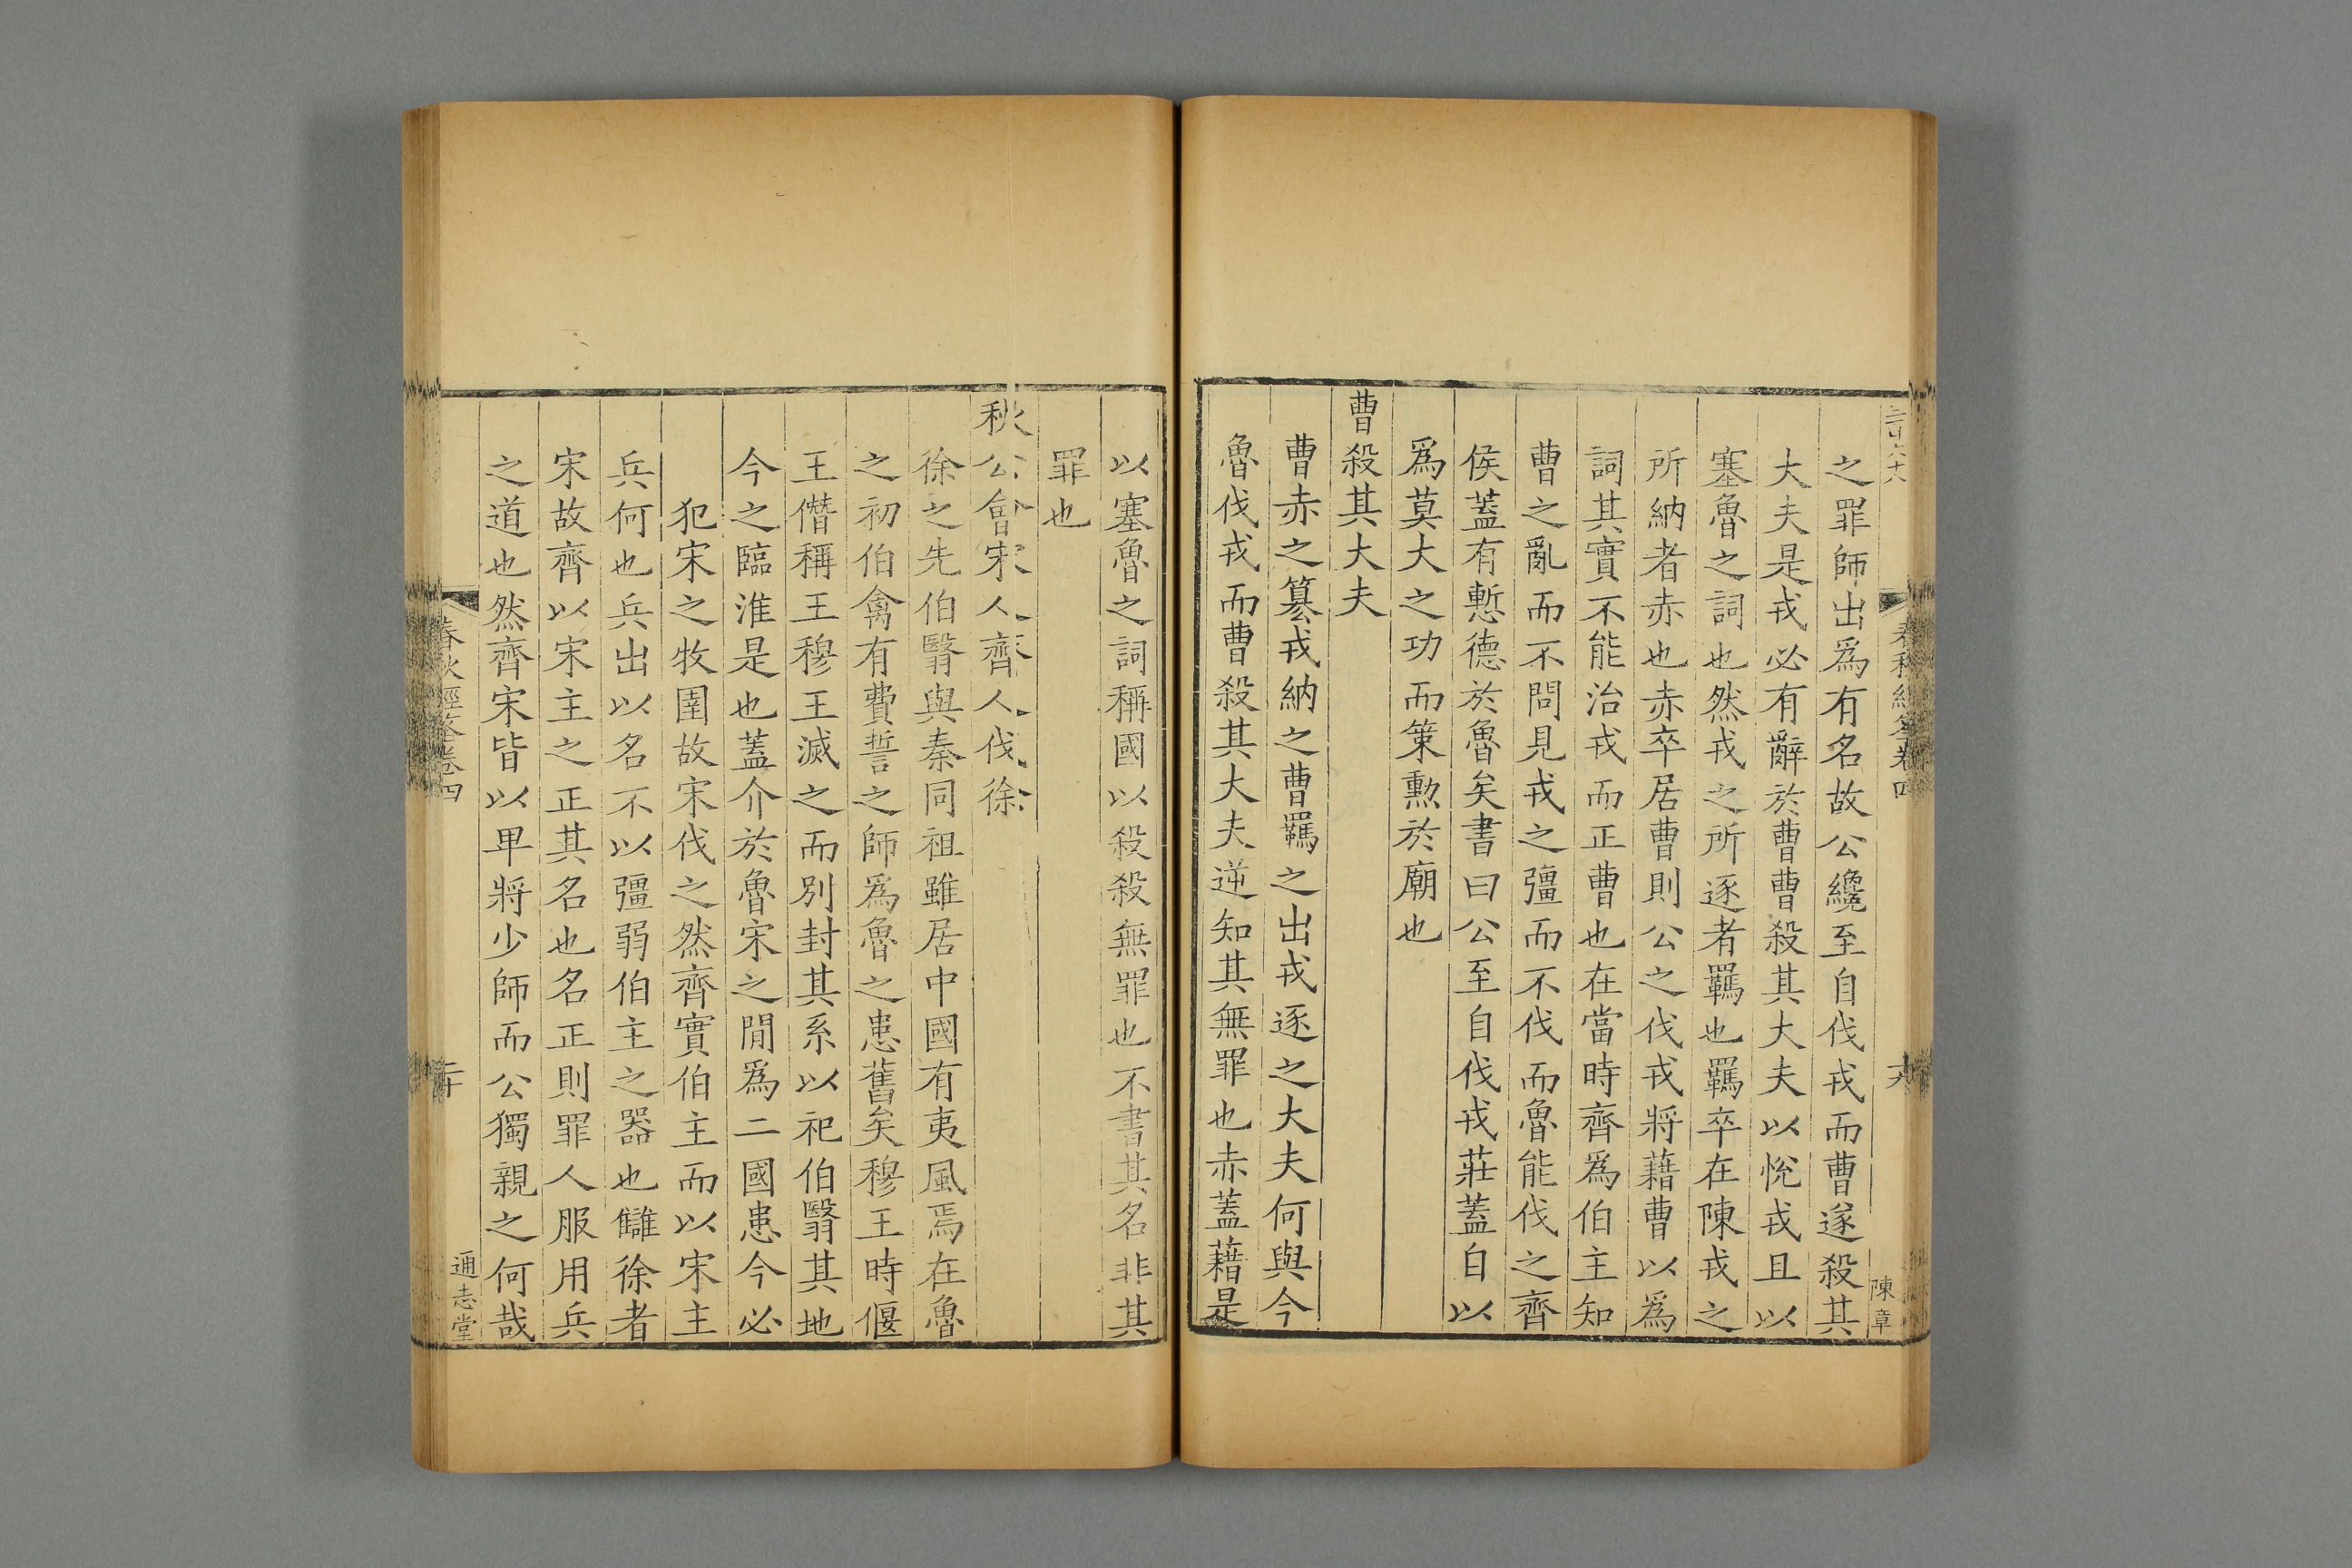 之罪師出爲有名故公纔至自伐戎而曹遂殺其
大夫是戎必有辭於曹曹殺其大夫以悅戎且以
塞魯之詞也然戎之所逐者羈也羈卒在陳戎之
所納者赤也赤卒居曹則公之伐戎將藉曹以爲
詞其實不能治戎而正曹也在當時齊爲伯主知
曹之亂而不問見戎之彊而不伐而魯能伐之齊
侯蓋有慙德於魯矣書曰公至自伐戎莊蓋自以
爲莫大之功而策勲於廟也
曹殺其大夫
曹赤之篡戎納之曹羈之出戎逐之大夫何與今
魯伐戎而曹殺其大夫逆知其無罪也赤蓋藉是
陳章
以塞魯之詞稱國以殺殺無罪也不書其名非其
罪也
秋公會宋人齊人伐徐
徐之先伯翳與秦同祖雖居中國有夷風焉在魯
之初伯禽有費誓之師爲魯之患舊矣穆王時偃
王僭稱王穆王滅之而別封其系以祀伯翳其地
今之臨淮是也蓋介於魯宋之閒爲二國患今必
犯宋之牧圉故宋伐之然齊實伯主而以宋主
兵何也兵出以名不以彊弱伯主之器也讎徐者
宋故齊以宋主之正其名也名正則罪人服用兵
之道也然齊宋皆以卑將少師而公獨親之何哉
春秋經筌卷四
二十
通志堂